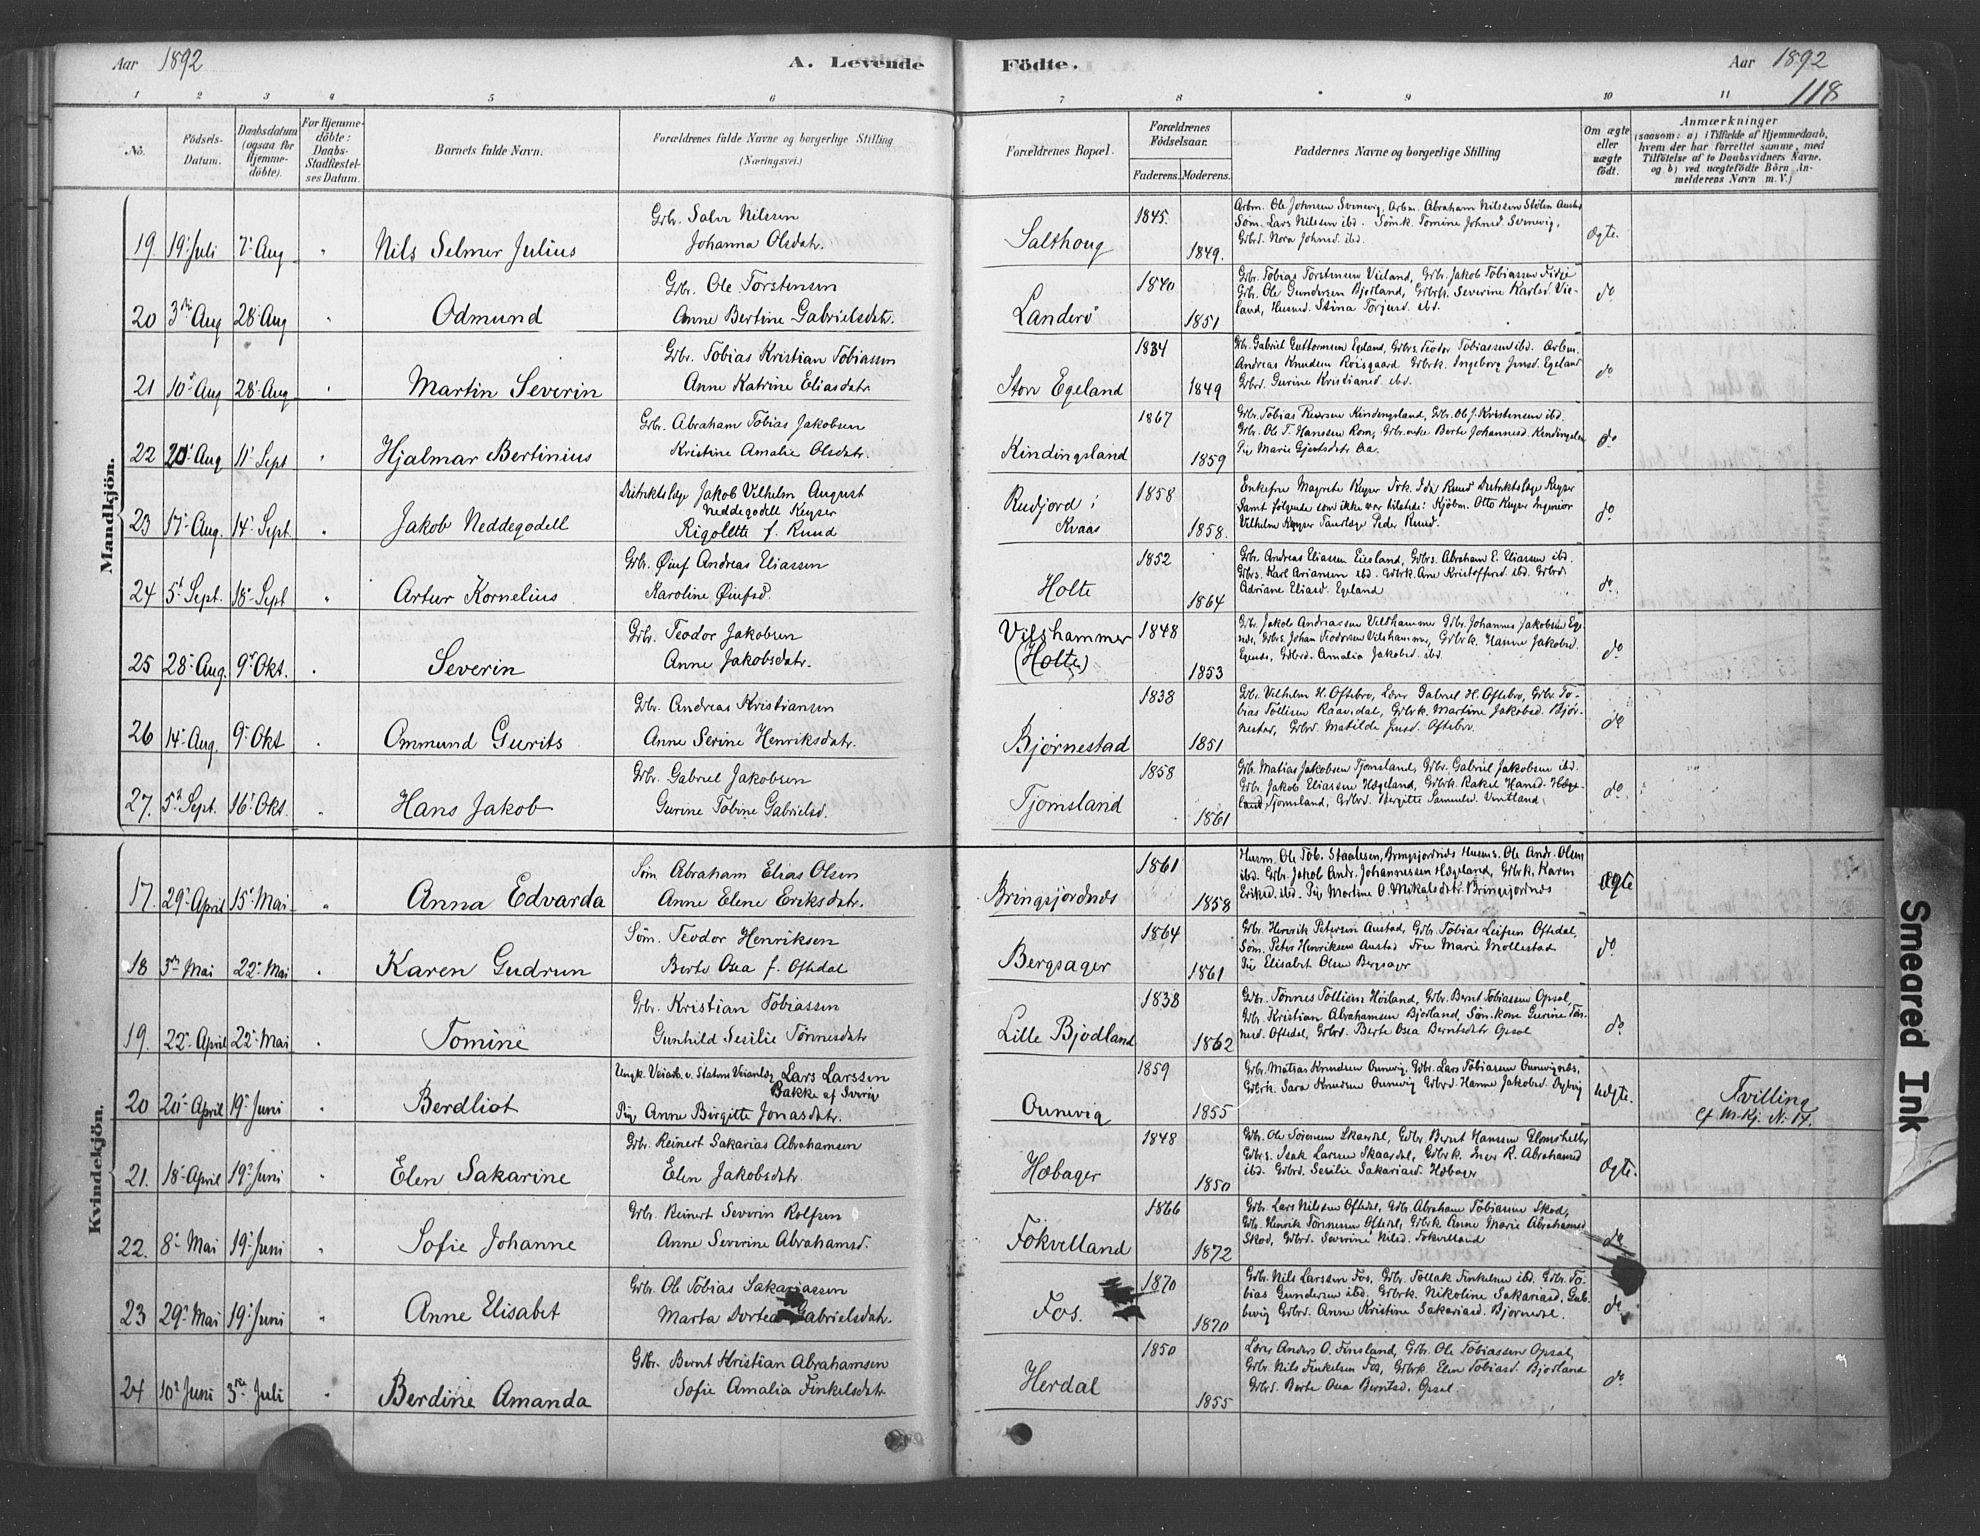 Aar 1892
A. Levende
Födte.
Aar 1892
118
1 2 3 4 5 6 7 8 9 10 11
No.
Födsels-Datum.
Daabsdatum (ogsaa for Hjemme-döbte).
For Hjemme-döbte: Daabs-Stadfæstelses Datum.
Barnets fulde Navn.
Forældrenes fulde Navne og borgerlige Stilling (Næringsvei.)
Forældrenes Bopæl.
Forældrenes Födselsaar.
Faderens. Moderens.
Faddernes Navne og borgerlige Stilling
Om ægte eller uægte födt.
Anmærkninger
(saasom: a) i Tilfælde af Hjemmedaab, hvem der har forrettet samme, med Tilföielse af to Daabsvidners Navne, og b) ved uægtefödte Börn Anmelderens Navn m. V.)
Mandkjön.
19 19' Juli 7' Aug " Nils Selmer Julius
Gbr. Salve Nilssen
Johanna Olsdatr.
Salthoug 1845. 1849.
Arbm. Ole Johnsen Svenevig, Arbm. Abraham Nilssen
Söm. Lars Nilssen ibd. Sömk. Tomine Johnsd. Svenevig,
Gbrd. Nora Johnsd. ibd.
Ægte.
20 3die Aug 28' Aug " Odmund
Gbr. Ole Torstensen
Anne Bertine Gabrielsdtr.
Landerö 1840 1851
Gbr. Tobias Torstensen Vieland, Gbr. Jakob Tobiassen
Gbr. Ole Gundersen Bjodland, Gbrk. Severine Karlsd. Vie-
land, Husmd. Stina Torjusd. ibd.
do
21 10' Aug 28' Aug " Martin Severin
Gbr. Tobias Kristian Tobiassen
Anne Katrine Eliasdatr.
Stor Egeland 1834 1849
Gbr. Gabriel Guttormsen Egeland, Gbrs. Teodor Tobiassen ibd. Arbm.
Andreas Knudsen Röisgaard Gbrk. Ingeborg Jensd. Egeland
Gbrd. Gurine Kristiansd. ibd.
do
22 20' Aug 11' Sept " Hjalmar Bertinius
Gbr. Abraham Tobias Jakobsen
Kristine Amalie Olsdatr.
Kindingsland 1867 1859
Gbr. Tobias Kindingsland, Gbr. Ol. J. Kristensen ibd.
Gbr. Ole T. Hanssen Rom, Gbr.enke Berte Johannesd. Kindingsland
Pig Marie Gjertsdatr Aa.
do
23 17' Aug. 14' Sept. " Jakob Neddegodell
Distriktslæge Jakob Vilhelm August
Neddegodell Keyser
Rigolette f. Ruud
Rudjord i Kvaas 1858 1858.
Enkefru Magrete Keyser Frk. Ida Ruud Distriktslæge Keyser
samt følgende som ikke var tilstede: Kjöbm. Otto Keyser Ingeniør
Vilhelm Keyser Peder Ruud.
do
24 5' Sept. 18' Sept " Artur Kornelius
Gbr. Øiuf Andreas Eliassen
Karoline Øiufsd.
Holte 1852 1864
Gbr. Andreas Eliassen Eiesland, Gbrs. Abraham E. Eliassen ibd.
Gbrs. Karl Ariansen ibd. Gbrk. Ane Kristoffersd. ibd. Gbrd
Adriane Eliasd. Egeland
do.
25 28' Aug. 9' Okt. " Severin
Gbr. Teodor Jakobsen
Anne Jakobsdatr.
Vilshammer (Holte) 1848 1853
Gbr. Jakob Andreassen Vilshammer Gbr. Johannes Jakobsen Ege-
nds, Gbrs. Johan Teodorsen Vilshammer, Gbrk. Hanne Jakobsd.
Egends, Gbrd. Amalia Jakobsd. ibd.
do
26 14' Aug. 9' Okt " Ommund Gurits
Gbr. Andreas Kristiansen
Anne Serine Henriksdatr.
Bjørnestad 1838 1851
Gbr. Vilhelm H. Oftebro, Lærer Gabriel H. Oftebro, Gbr. To-
bias Tollisen Raavsdal, Gbrk. Martine Jakobsd. Bjør-
nestad, Gbrd. Matilde Jensd. Oftebro.
do
27. 5' Sept. 16' Okt. " Hans Jakob
Gbr. Gabriel Jakobsen
Gurine Tobine Gabrielsd.
Tjomsland 1858 1861
Gbr. Matias Jakobsen Tjomsland, Gbr. Gabriel Jakobsen ibd.
Gbr. Jakob Eliassen Hægeland, Gbrk. Rakel Hansd. Hæge-
land, Tjomsland, Gbrd. Bergitte Samuelsd. Vintland.
do.
Kvindekjön.
17. 29' April 15' Mai " Anna Edvarda
Söm. Abraham Elias Olsen
Anne Elene Eriksdatr.
Bringsjordnds 1861 1858
Husm. Ole Tob. Staalesen, Bringsjordnds Husms. Ole Andr. Olsen
ibd. Gbr. Jakob Andr. Johannessen Hægeland, Gbrk. Karen
Eriksd. ibd. Pig Martine O. Mikalsdtr. Bringsjordnds
Ægte
18 3die Mai 22' Mai " Karen Gudrun
Söm. Teodor Henriksen
Berte Osea f. Oftedal
Bergsager 1864 1861
Gbr. Henrik Petersen Austad, Gbr. Tobias Leifsen Oftedal,
Söm. Peter Henriksen Austad Frue Marie Mollestad
Pig Elisabet Olsen Bergsager
do.
19. 22' April 22' Mai " Tomine
Gbr. Kristian Tobiassen
Gunhild Sesilie Tönnesdatr
Lille Bjodland 1838 1862
Gbr. Tönnes Tollisen Høiland, Gbr. Bernt Tobiassen Opsal,
Gbr. Kristian Abrahamsen Bjodland, Söm.kone Gurine Tön-
nesd. Oftedal, Gbrd. Berte Osea Berntsdatr Opsal
do
20 20' April 19' Juni " Berdliot
Ungk. Veiarb. v. Statens Veianlæg Lars Larssen
Bakke af Sverig
Pig Anne Birgitte Jonasdatr.
Ounevig 1859 1855
Gbr. Matias Knudsen Ounevig, Gbr. Lars Tobiassen Ounevignds,
Gbrk. Sara Knudsen Ounevig Gbrd. Hanne Jakobsd. Dybvig
uægte.
Tvilling
cf. M.Kj. N: 17.
21. 18' April 19' Juni " Elen Sakarine
Gbr. Reinert Sakarias Abrahamsen
Elen Jakobsdatr.
Hæbager 1848 1850
Gbr. Ole Sörensen Skardal, Gbr. Bernt Hanssen Glomsheller
Gbrs. Isak Larssen Skaardal, Gbrk. Inger R. Abrahamsd
ibd. Gbrd. Sesilie Sakariasd. Hæbager
Ægte.
22. 8' Mai 19' Juni " Sofie Johanne
Gbr. Reinert Severin Rolfsen
Anne Severine Abrahamsd.
Fokvelland 1866 1872
Gbr. Lars Nilssen Oftedal, Gbr. Abraham Tobiassen Skod,
Gbr. Henrik Tönnessen Oftedal, Gbrk Anne Marie Abrahamsd
Skod, Gbrd. Severine Nilsd. Fokvelland
do
23 29' Mai 19' Juni " Anne Elisabet
Gbr. Ole Tobias Sakariassen
Marta Dortea Gabrielsdatr.
Fos. 1870 1870
Gbr. Nils Larssen Fos, Gbr. Tollak Finkelsen ibd. Gbr. To-
bias Gundersen ibd. Gbrk. Nikoline Sakariasd.
Gbrd. Anne Kristine Sakariasd.
do
24 10' Juni 3die Juli " Berdine Amanda
Gbr. Bernt Kristian Abrahamsen
Sofie Amalia Finkelsdatr
Herdal 1850 1855
Lærer Anders O. Finsland, Gbr. Ole Tobiassen Opsal,
Gbr. Nils Finkelsen Fos, Gbrk. Elen Tobiasd. Bjodland
Gbrd. Berte Osea Berntsd. Opsal
do
Smeared Ink